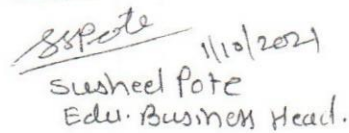 SSPote
1/10/2021
Susheel Pote
Edu. Business Head.